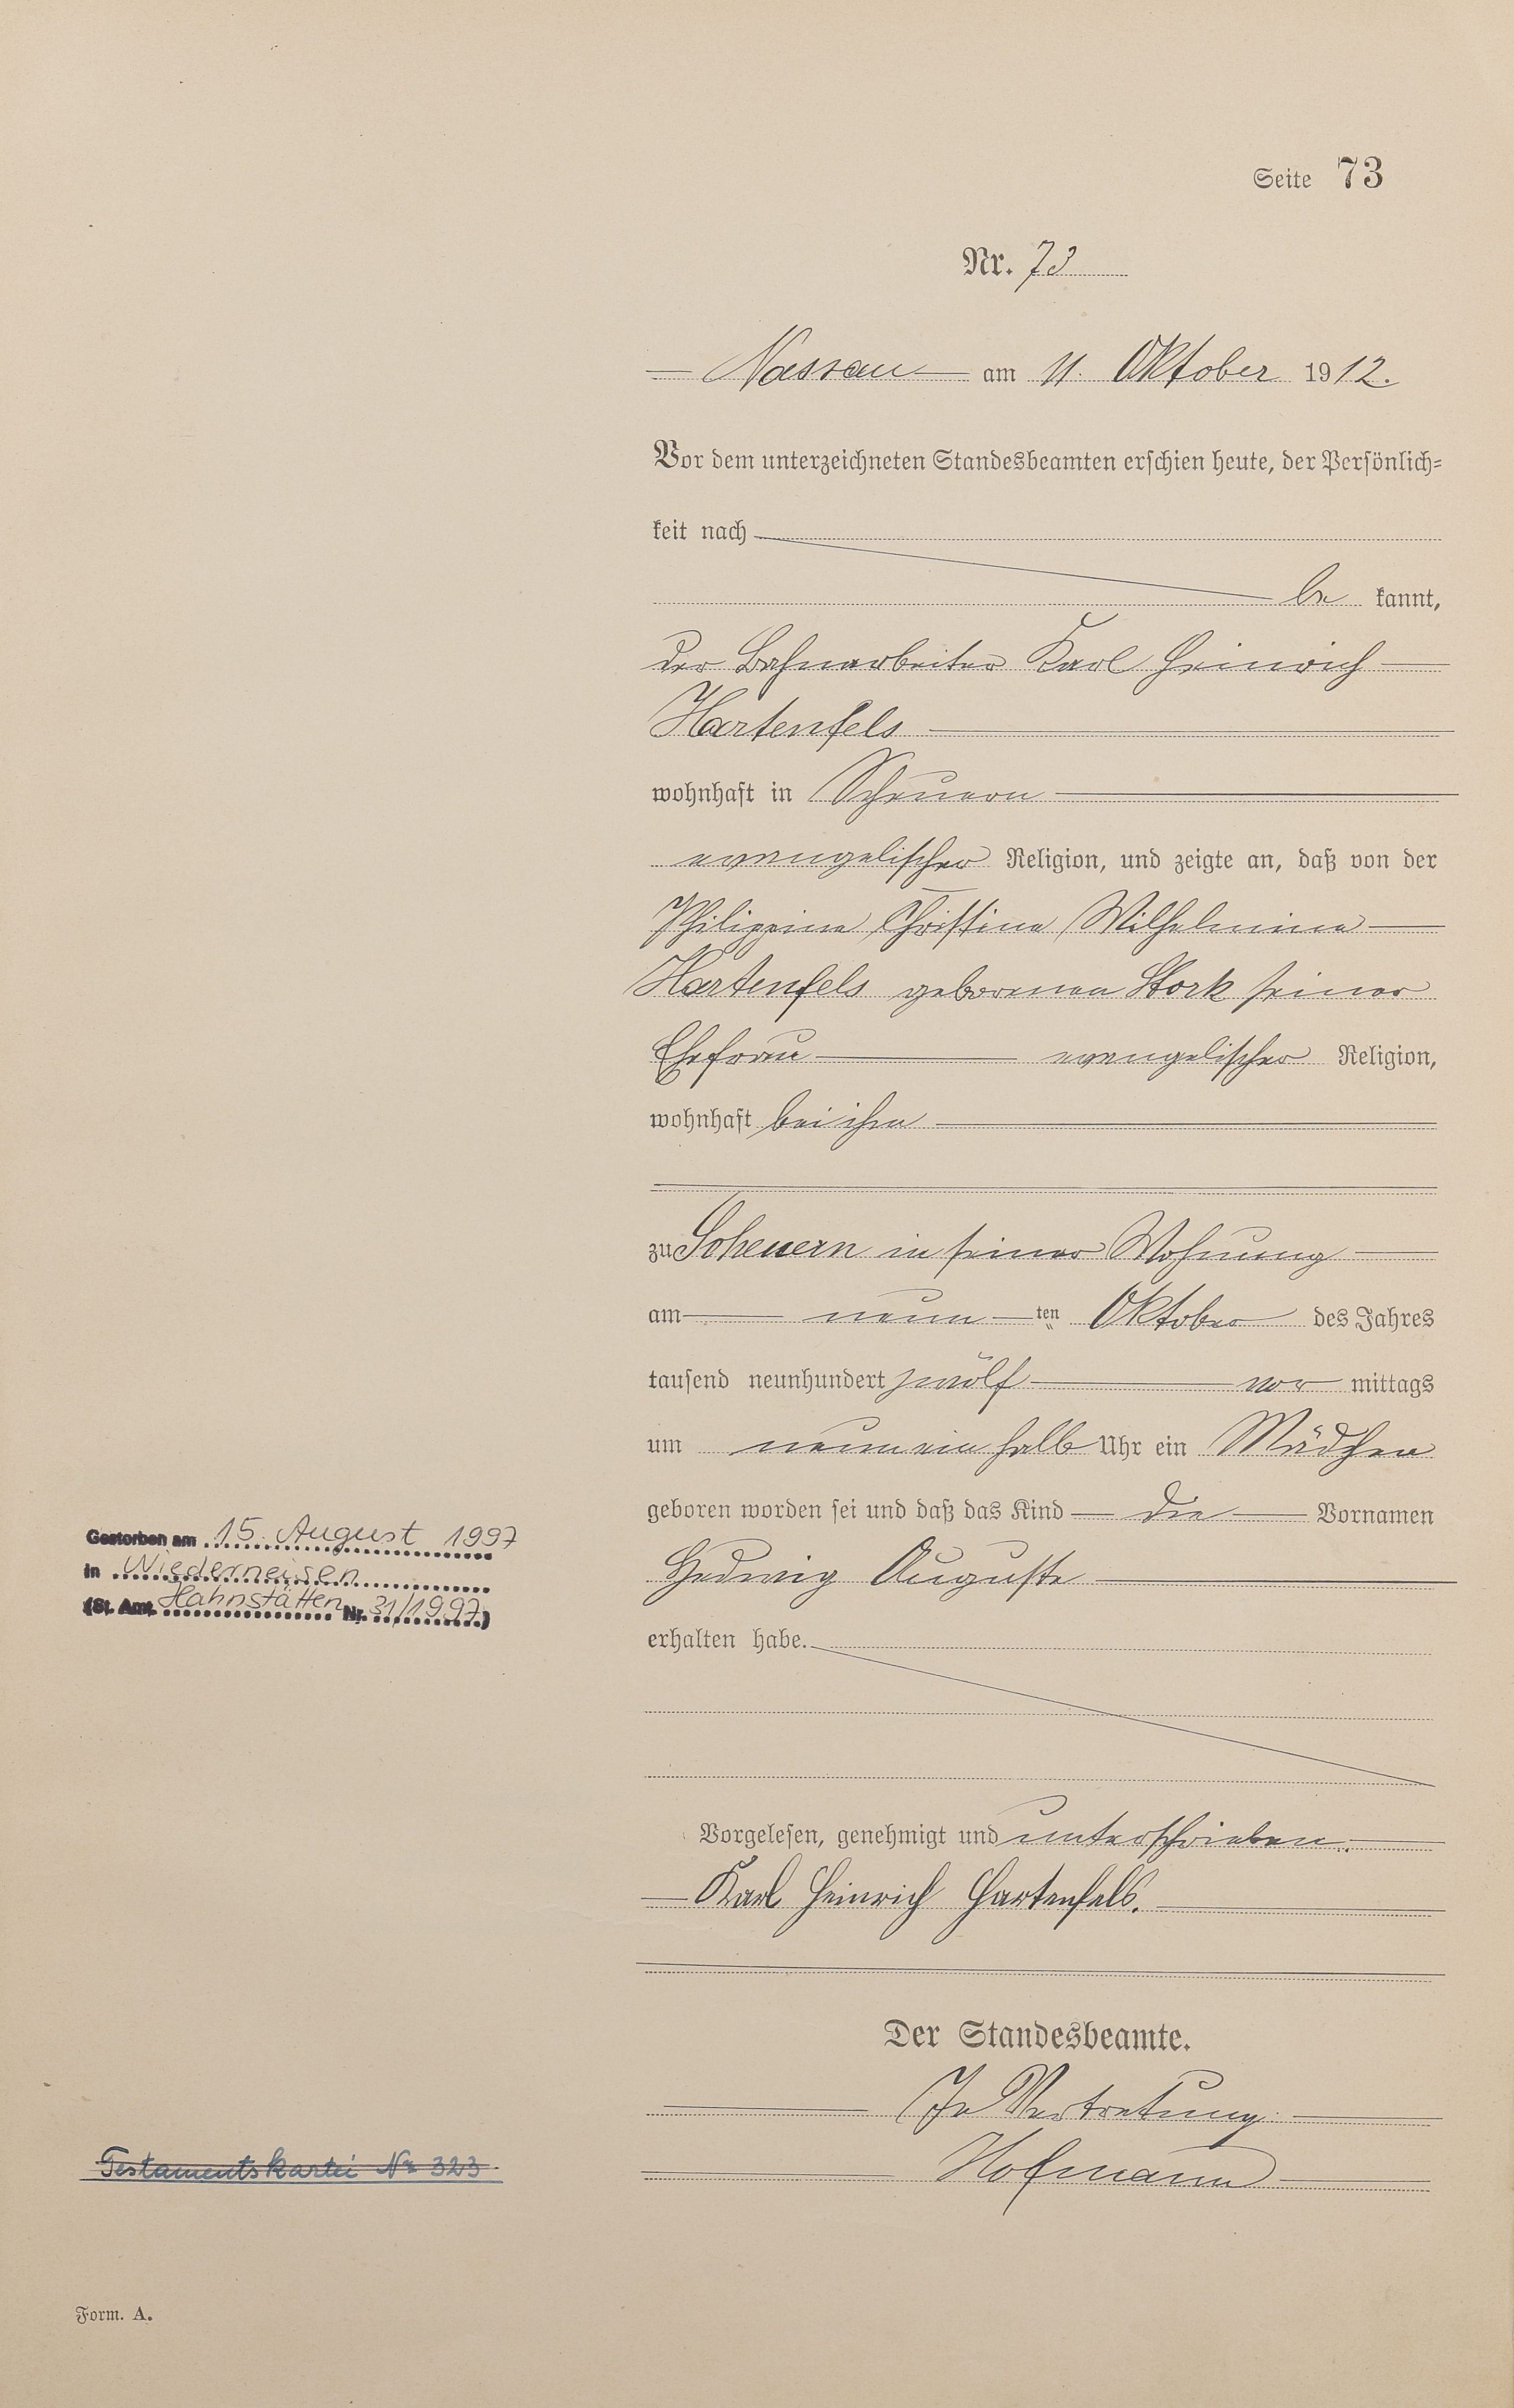 Seite 73
Nr. 73
Nassau am 11. Oktober 1912.
Vor dem unterzeichneten Standesbeamten erschien heute, der Persönlich=
keit nach
be kannt,
der Bahnarbeiter Karl Heinrich
Hartenfels
wohnhaft in Scheuern
evangelischer Religion, und zeigte an, daß von der
Philippine Christine Wilhelmine
Hartenfels geborenen Stork seiner
Ehefrau evangelischer Religion,
wohnhaft bei ihm
zu Scheuern in seiner Wohnung
am neun ten Oktober des Jahres
tausend neunhundert zwölf vor mittags
um neunein halb Uhr ein Mädchen
geboren worden sei und daß das Kind die Vornamen
Hedwig Auguste
erhalten habe.
Vorgelesen, genehmigt und unterschrieben.
Karl Heinrich Hartenfels.
Der Standesbeamte.
In Vertretung
Hofmann
Gestorben am 15. August 1997
in Niederneisen
(St. Amt. Hahnstätten Nr. 31/1997)
Testamentskartei Nr 323
Form. A.